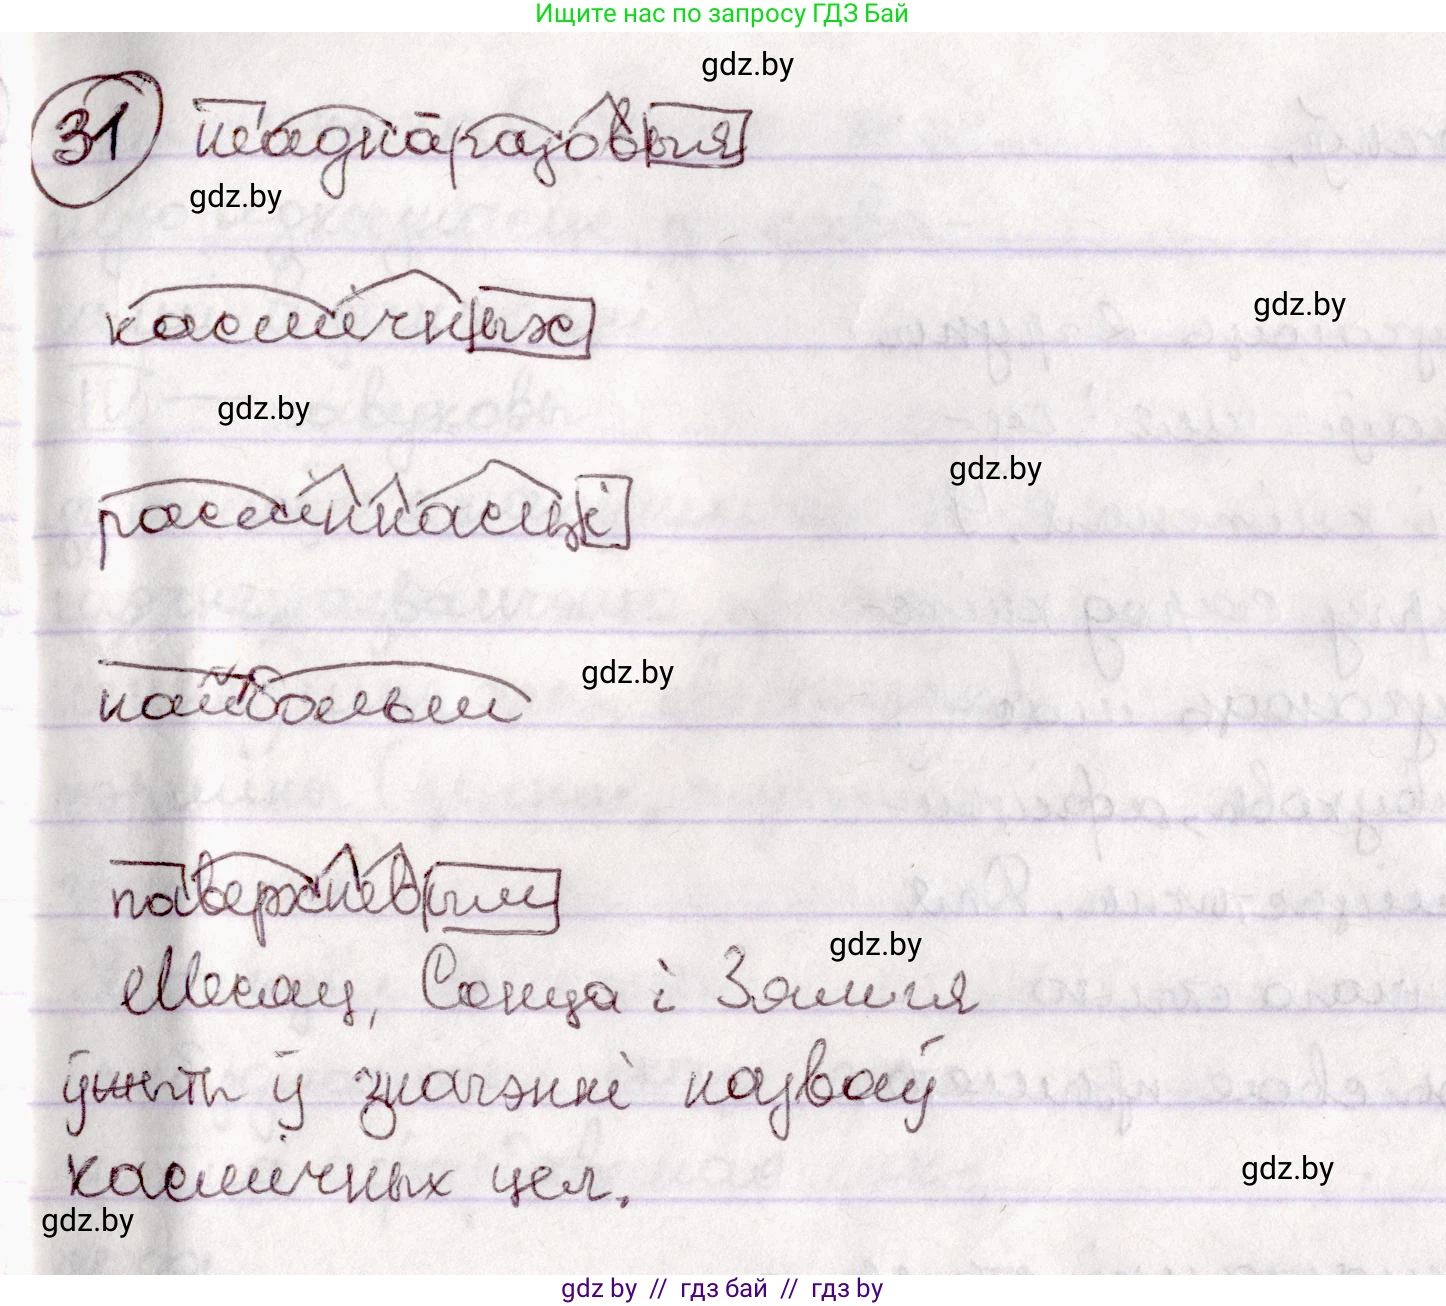 Ищите нас по запросу ГДЗ Бай
gdz.by
31 неаднаразовыя
gdz.by
касмічных
gdz.by
gdz.by
расліннасці
gdz.by
найбольш
gdz.by
паверхневым
gdz.by
Месяц, Сонца і Зямля
ўжыты ў значэнні назваў
касмічных цел.
gdz.by
gdz.by
gdz by // гдз бай // гдз by